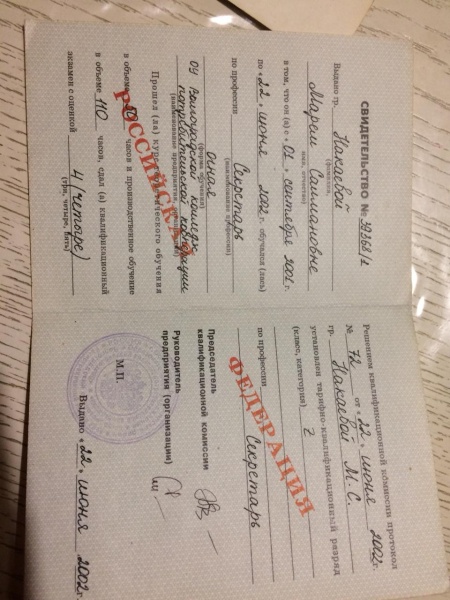 СВИДЕТЕЛЬСТВО №
Выдано гр. Накаевой
(фамилия,
имя, отчество)
в том, что он (а) с « 01 » сентября 2001 г.
по « 22 » июня 2002 г. обучался (лась)
по профессии Секретарь
(наименование профессии)
очная
(форма обучения)
ОУ Волгоградский колледж
потребительской кооперации
Прошел (ла) курс теоретического обучения
в объеме часов и производственное обучение
в объеме 110 часов, сдал (а) квалификационный
экзамен с оценкой 4 (четыре)
(три, четыре, пять)
РОССИЙСКАЯ
Решением квалификационной комиссии протокол
№ 72 от « 22 » июня 2002 г.
гр. Накаевой М. С.
установлен тарифно-квалификационный разряд
(класс, категория) 2
по профессии Секретарь
ФЕДЕРАЦИЯ
Председатель
квалификационной комиссии
Руководитель
предприятия (организации)
М.П.
Выдано « 22 » июня 2002 г.